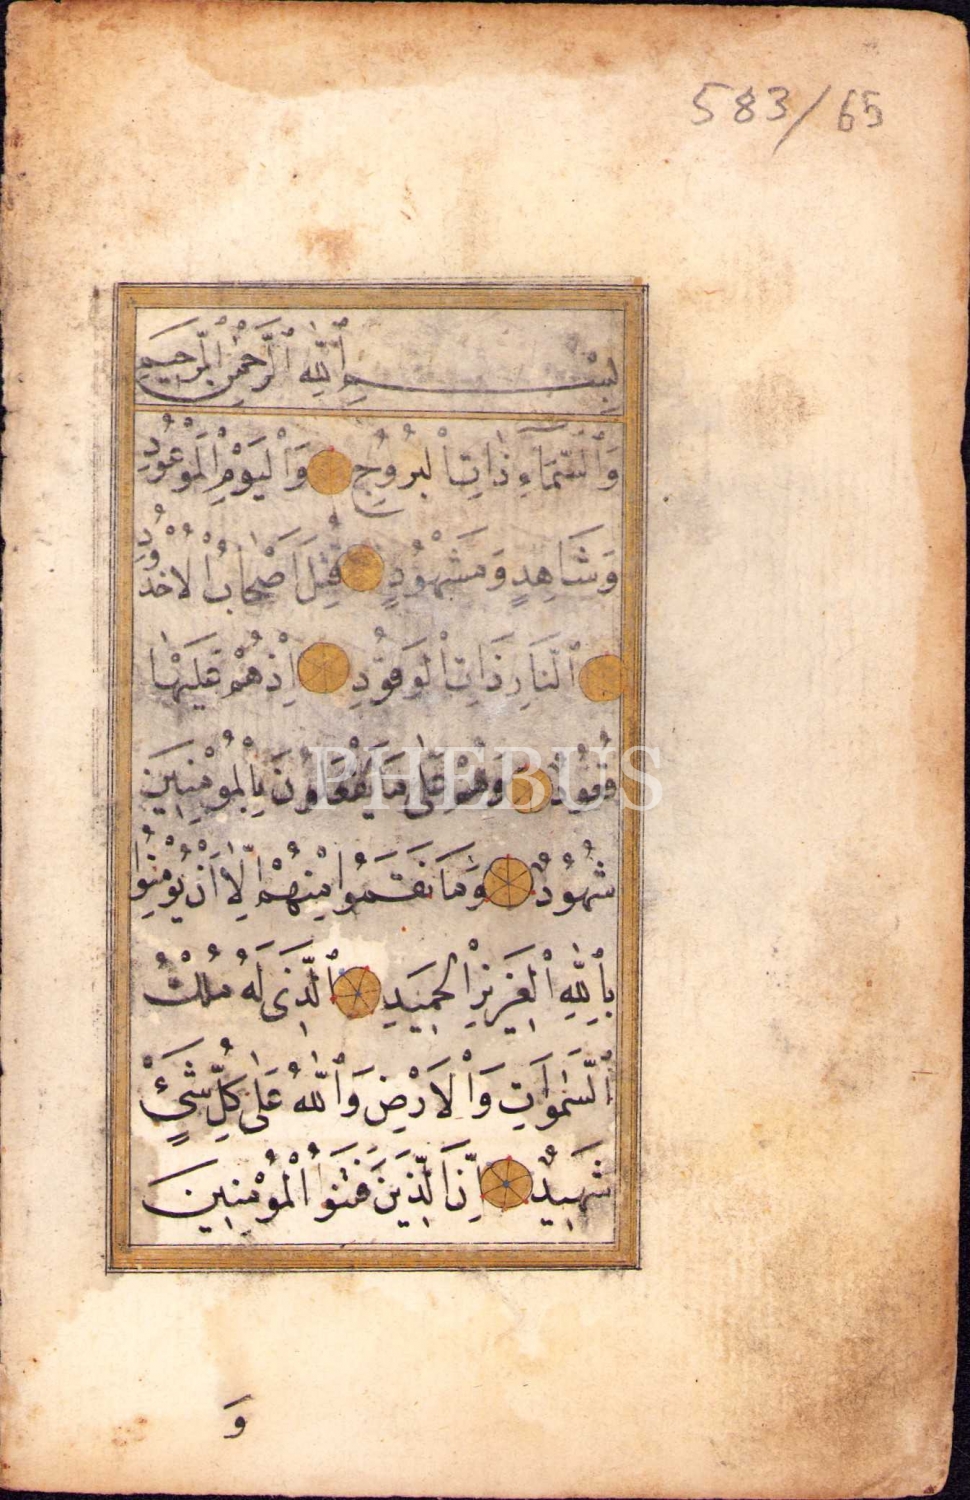 583/65
بِسْمِ ٱللّٰهِ ٱلرَّحْمٰنِ ٱلرَّحِيمِ
وَٱلسَّمَآءِ ذَاتِ ٱلْبُرُوجِ وَٱلْيَوْمِ ٱلْمَوْعُودِ
وَشَاهِدٍ وَمَشْهُودٍ قُتِلَ اَصْحَابُ ٱلْاُخْدُودِ
ٱلنَّارِ ذَاتِ ٱلْوَقُودِ اِذْ هُمْ عَلَيْهَا
قُعُودٌ وَهُمْ عَلٰى مَا يَفْعَلُونَ بِالْمُؤْمِنِينَ
شُهُودٌ وَمَا نَقَمُوا مِنْهُمْ اِلَّا اَنْ يُؤْمِنُوا
بِٱللّٰهِ ٱلْعَزِيزِ ٱلْحَمِيدِ ٱلَّذِى لَهُ مُلْكُ
ٱلسَّمٰوَاتِ وَٱلْاَرْضِ وَٱللّٰهُ عَلٰى كُلِّ شَىْءٍ
شَهِيدٌ اِنَّ ٱلَّذِينَ فَتَنُوا ٱلْمُؤْمِنِينَ
وَ
PHEBUS